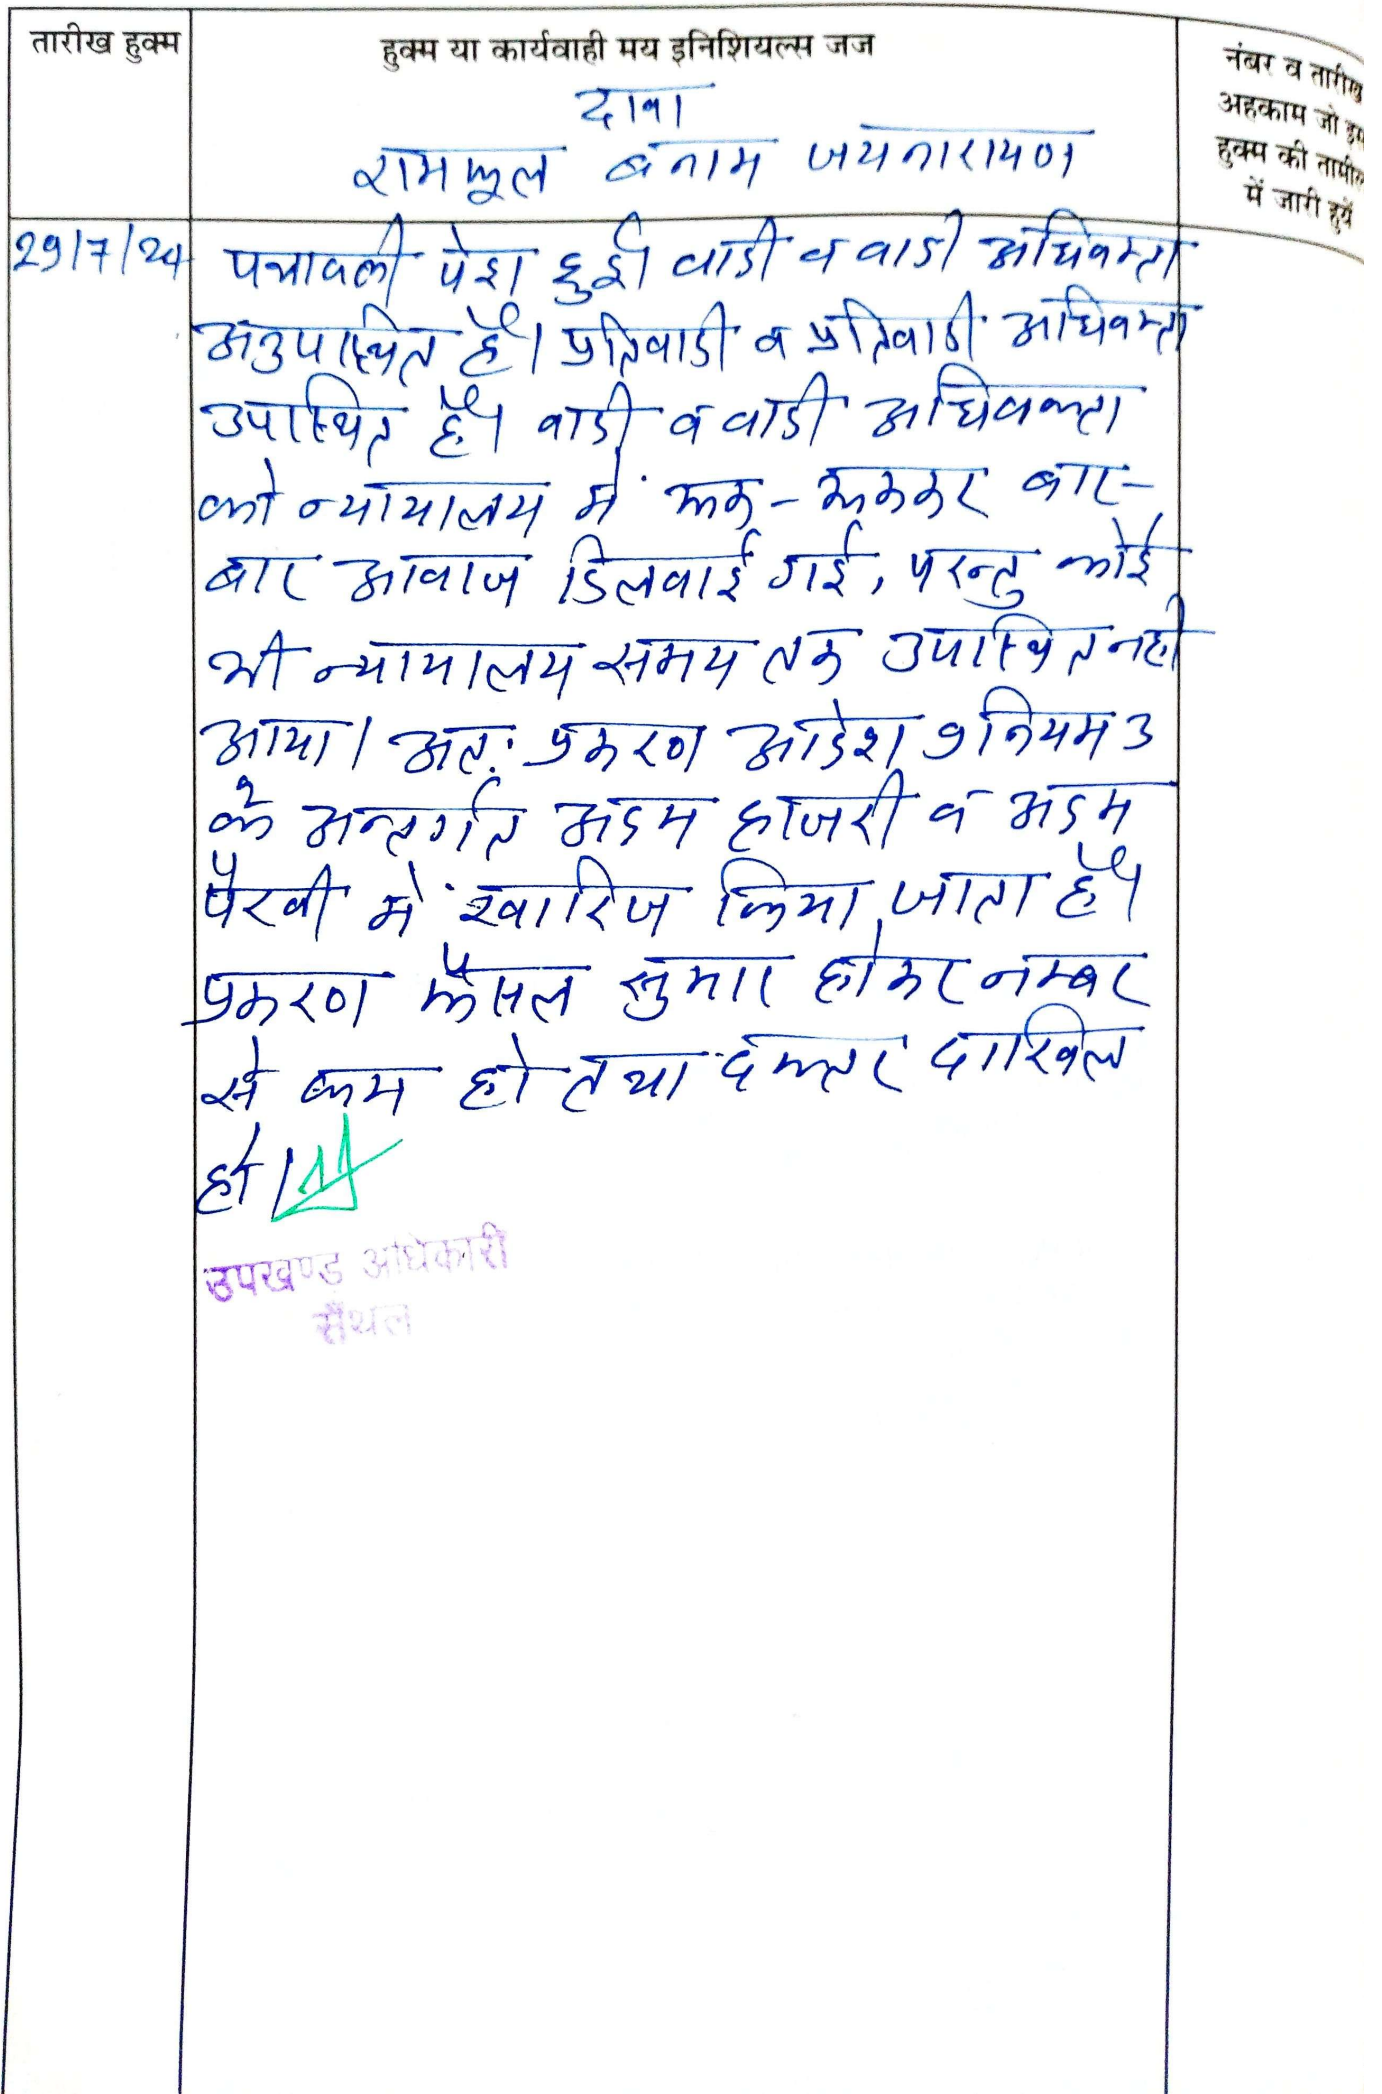 तारीख हुक्म
हुक्म या कार्यवाही मय इनिशियल्स जज
नंबर व तारीख
अहकाम जो इस
हुक्म की तामील
में जारी हुयें
दावा
रामफूल बनाम जयनारायण
29/7/24
पत्रावली पेश हुई। वादी व वादी अधिवक्ता
अनुपस्थित है। प्रतिवादी व प्रतिवादी अधिवक्ता
उपस्थित है। वादी व वादी अधिवक्ता
को न्यायालय में रूक-रूककर बार-
बार आवाज दिलवाई गई, परन्तु कोई
भी न्यायालय समय तक उपस्थित नही
आया। अतः प्रकरण आदेश 9 नियम 3
के अन्तर्गत अदम हाजरी व अदम
पैरवी में खारिज किया जाता है।
प्रकरण फैसल सुमार होकर नम्बर
से कम हो तथा दफ्तर दाखिल
हो।
उपखण्ड अधिकारी
सैंथल